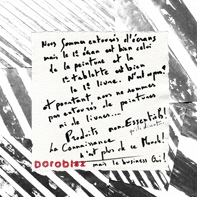 Nous sommes entourés d'écrans
mais le 1er écran est bien celui
de la peinture et la
1ère tablette est bien
le 1er livre. N'est-ce pas?
et pourtant on ne sommes
pas entourés de peintures
ni de livres...
Produits non-Essentiels!
La Connaissance
n'est plus de ce Monde!
Doroblaz mais le business Oui!